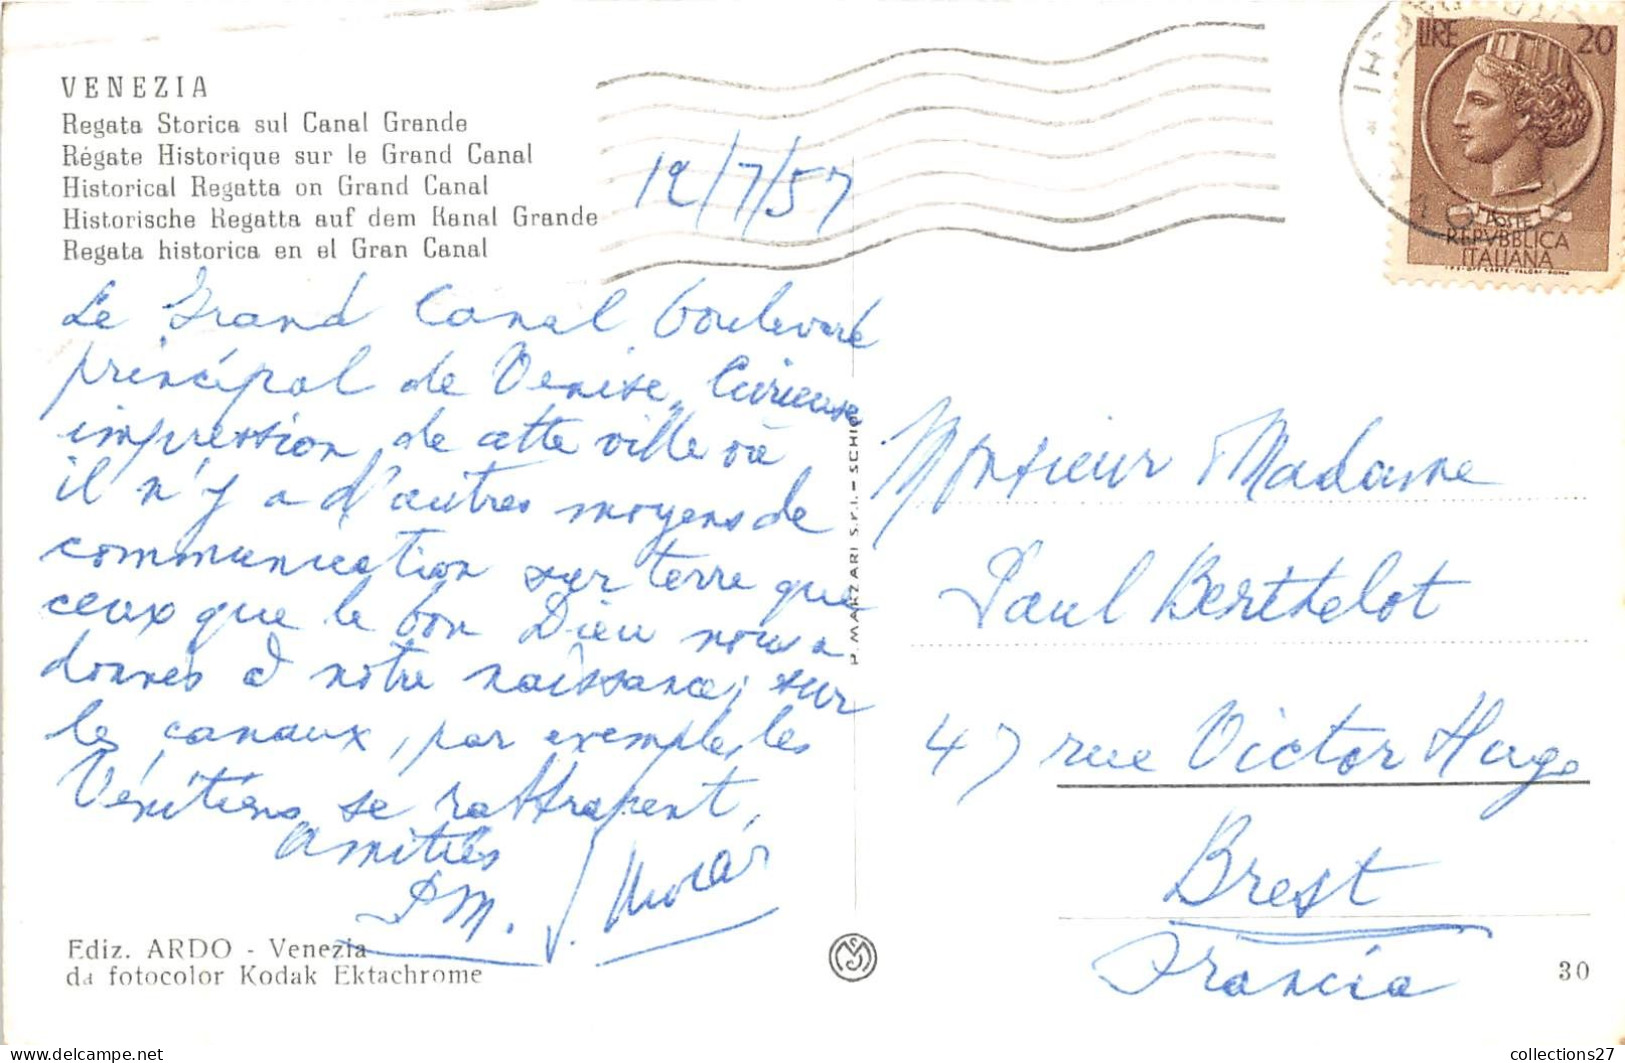 VENEZIA
Regata Storica sul Canal Grande
Régate Historique sur le Grand Canal
Historical Regatta on Grand Canal
Historische Regatta auf dem Kanal Grande
Regata historica en el Gran Canal
12/7/57
LIRE 20
POSTE
REPVBBLICA
ITALIANA
Le Grand Canal boulevard
principal de Venise. Curieuse
impression de cette ville où
il n'y a d'autres moyens de
communication sur terre que
ceux que le bon Dieu nous a
donnés à notre naissance; sur
les canaux, par exemple, les
Vénitiens se rattrapent.
Amitiés
PM.
Monsieur Madame
Paul Berthelot
47 rue Victor Hugo
Brest
Francia
P. MARZARI S.r.l. - SCHIO
Ediz. ARDO - Venezia
da fotocolor Kodak Ektachrome
30
collections27